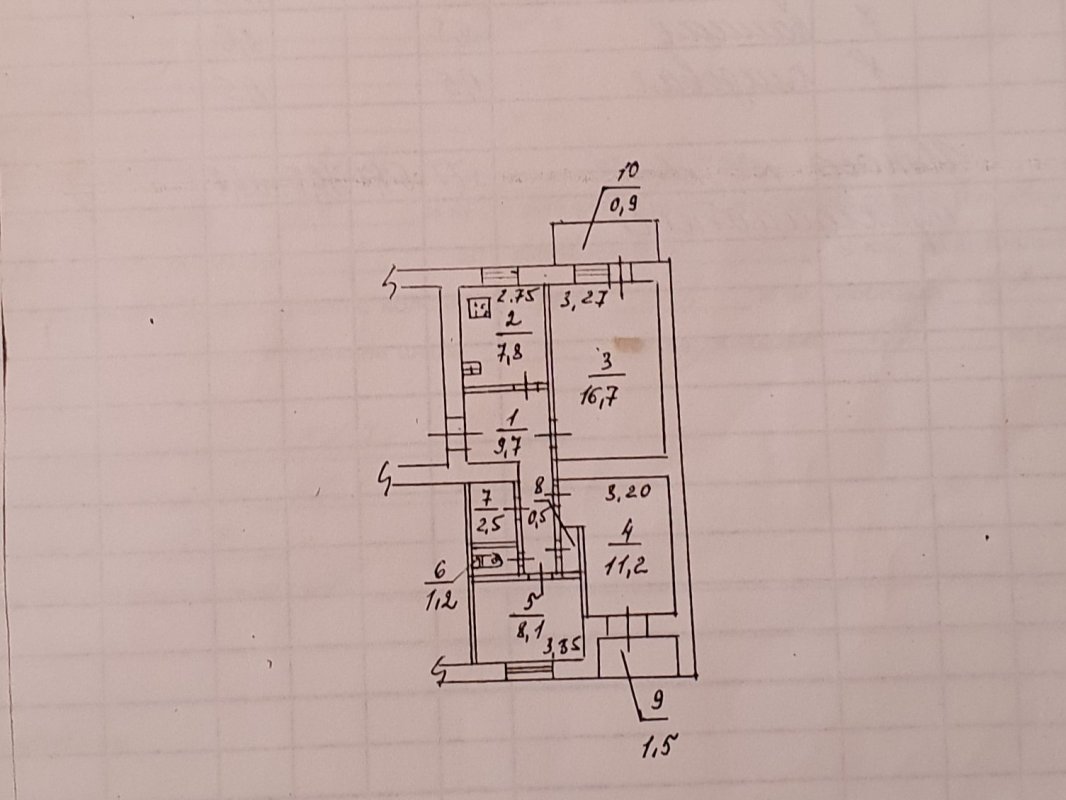 10
0,9
2.75
3,27
2
7,8
3
16,7
1
9,7
8
0,5
3,20
7
2,5
4
11,2
6
1,2
5
8,1
3,85
9
1,5